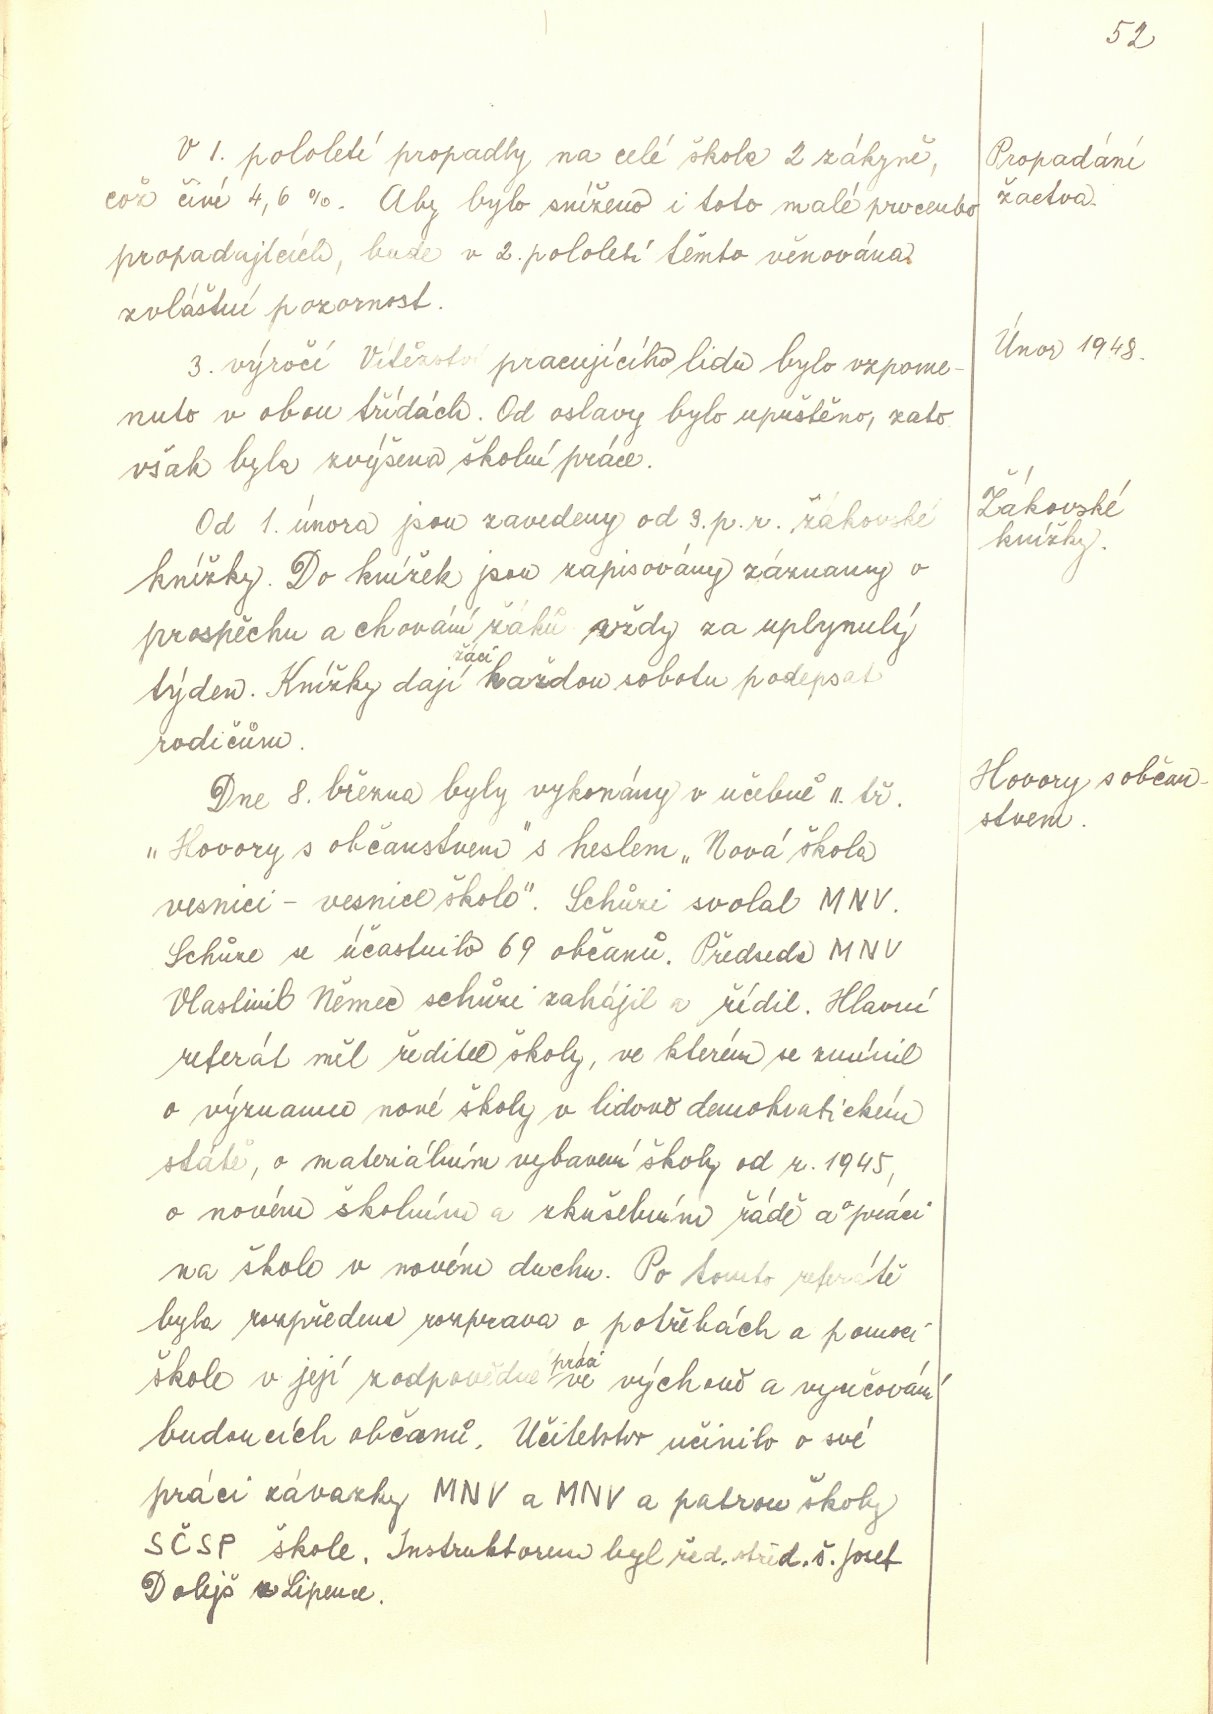 52
V 1. pololetí propadly na celé škole 2 žákyně,
což činí 4,6 %. Aby bylo sníženo i toto malé procento
propadajících, bude v 2. pololetí těmto věnována
zvláštní pozornost.
Propadání
žactva.
3. výročí Vítězství pracujícího lidu bylo vzpome-
nuto v obou třídách. Od oslavy bylo upuštěno, zato
však byla zvýšena školní práce.
Únor 1948.
Od 1. února jsou zavedeny od 3. p. r. žákovské
knížky. Do knížek jsou zapisovány záznamy o
prospěchu a chování žáků vždy za uplynulý
týden. Knížky dají žáci každou sobotu podepsat
rodičům.
Žákovské
knížky.
Dne 8. března byly vykonány v učebně II. tř.
„Hovory s občanstvem" s heslem „Nová škola
vesnici – vesnice škole". Schůzi svolal MNV.
Schůze se účastnilo 69 občanů. Předseda MNV
Vlastimil Němec schůzi zahájil a řídil. Hlavní
referát měl ředitel školy, ve kterém se zmínil
o významu nové školy v lidově demokratickém
státě, o materiálním vybavení školy od r. 1945,
o novém školním a zkušebním řádě a o práci
na škole v novém duchu. Po tomto referátě
byla rozpředena rozprava o potřebách a pomoci
škole v její zodpovědné práci ve výchově a vyučování
budoucích občanů. Učitelstvo učinilo o své
práci závazky MNV a MNV a patron školy
SČSP škole. Instruktorem byl řed. střed. š. Josef
Dolejš z Lipence.
Hovory s občan-
stvem.